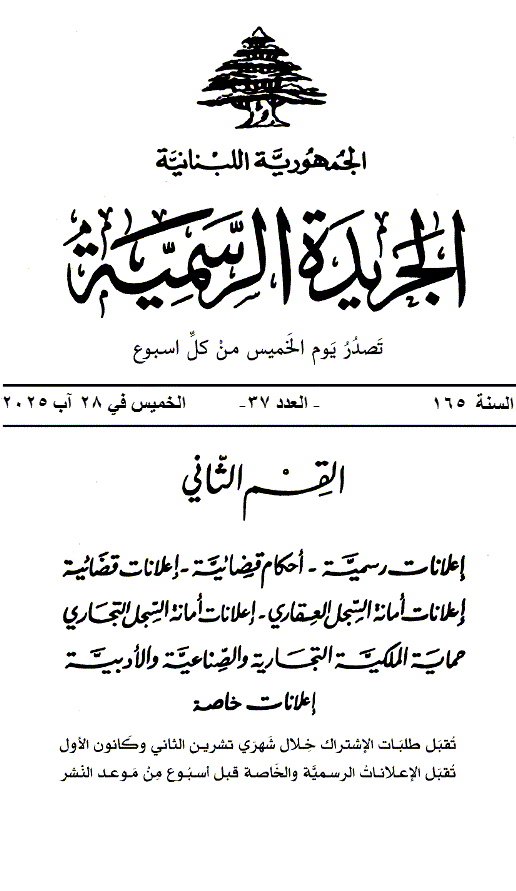 الجُمهُوريَّة اللبْنانيَّة
الجَريدَة الرسَّمِيَّة
تَصدُرُ يَوم الخَميس منْ كلِّ اسبوع
السنة ١٦٥ - العدد ٣٧- الخميس في ٢٨ آب ٢٠٢٥
القِسْم الثَّاني
إعلانات رسميَّة - أحكام قضائيَّة - إعلانات قضائية
إعلانات أمانة السِّجل العقاري - إعلانات أمانة السِّجل التجاري
حماية الملكيَّة التجارية والصِّناعيَّة والأدبيَّة
إعلانات خاصة
تُقبَل طلبَات الإشتراك خِلال شَهرَي تشرين الثاني وكَانون الأول
تُقبَل الإعلاناتُ الرسميَّة والخَاصة قبل أسبُوع مِنْ مَوعد النَشر